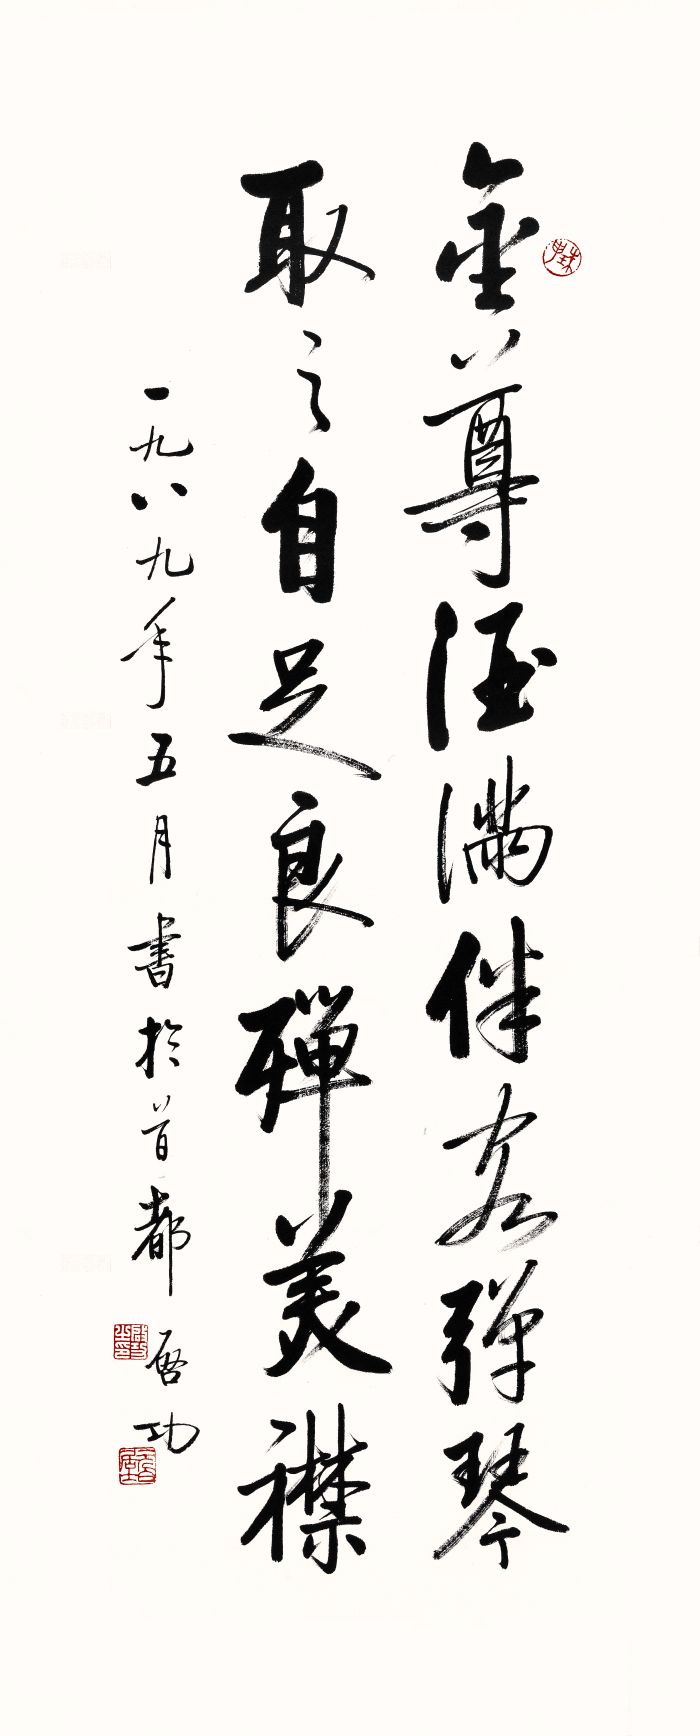 金尊酒滿伴客弹琴
取之自足良殚美襟
一九八九年五月書於首都 启功